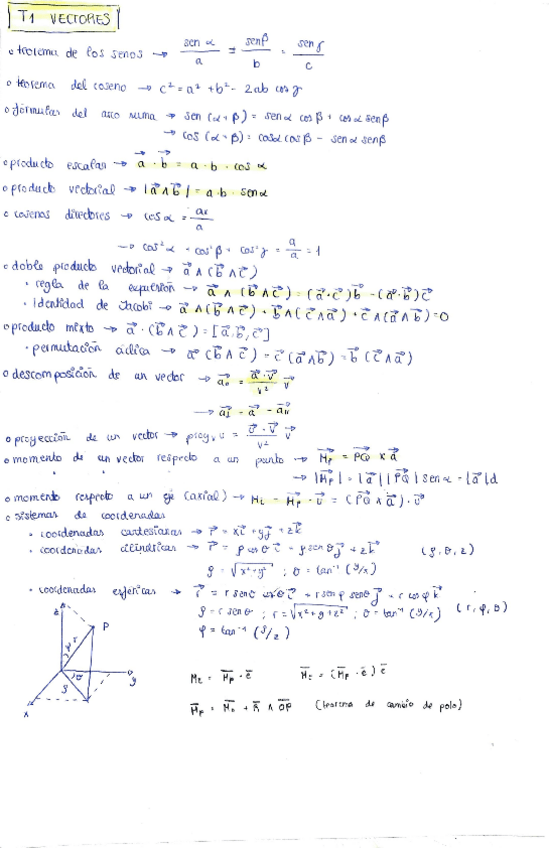 T1 VECTORES
o teorema de los senos → sen α / a = sen β / b = sen γ / c
o teorema del coseno → c² = a² + b² - 2ab cos γ
o fórmulas del arco suma → sen (α+β) = sen α cos β + cos α sen β
→ cos (α+β) = cos α cos β - sen α sen β
o producto escalar → a⃗ · b⃗ = a · b · cos α
o producto vectorial → |a⃗ ∧ b⃗| = a · b · sen α
o cosenos directores → cos α = ax / a
→ cos² α + cos² β + cos² γ = a / a = 1
o doble producto vectorial → a⃗ ∧ (b⃗ ∧ c⃗)
• regla de la expulsión → a⃗ ∧ (b⃗ ∧ c⃗) = (a⃗ · c⃗) b⃗ - (a⃗ · b⃗) c⃗
• identidad de Jacobi → a⃗ ∧ (b⃗ ∧ c⃗) + b⃗ ∧ (c⃗ ∧ a⃗) + c⃗ ∧ (a⃗ ∧ b⃗) = 0
o producto mixto → a⃗ · (b⃗ ∧ c⃗) = [a⃗, b⃗, c⃗]
• permutación cíclica → a⃗ (b⃗ ∧ c⃗) = c⃗ (a⃗ ∧ b⃗) = b⃗ (c⃗ ∧ a⃗)
o descomposición de un vector → a⃗ıı = a⃗ · v⃗ / v² v⃗
→ a⃗⊥ = a⃗ - a⃗ıı
o proyección de un vector → proy v u = u⃗ · v⃗ / v² v⃗
o momento de un vector respecto a un punto → M⃗p = PQ⃗ × a⃗
→ |M⃗p| = |a⃗| |PQ⃗| sen α = |a⃗| d
o momento respecto a un eje (axial) → ME = M⃗p · u⃗ = (PQ⃗ × a⃗) · u⃗
o sistemas de coordenadas
• coordenadas cartesianas → r⃗ = xi⃗ + yj⃗ + zk⃗
• coordenadas cilíndricas → r⃗ = ρ cos θ i⃗ + ρ sen θ j⃗ + z k⃗ (ρ, θ, z)
ρ = √x² + y² ; θ = tan⁻¹ (y/x)
• coordenadas esféricas → r⃗ = r sen φ cos θ i⃗ + r sen φ sen θ j⃗ + r cos φ k⃗
ρ = r sen φ ; r = √x² + y² + z² ; θ = tan⁻¹ (y/x) (r, φ, θ)
φ = tan⁻¹ (ρ/z)
z
P
φ r
θ
ρ
y
x
ME = M̄p · ē M̄E = (M̄p · ē) ē
M̄p = M̄o + R̄ ∧ OP (teorema de cambio de polo)